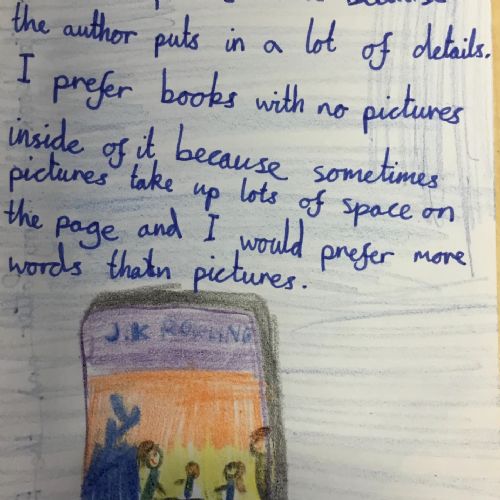 because
the author puts in a lot of details.
I prefer books with no pictures
inside of it because sometimes
pictures take up lots of space on
the page and I would prefer more
words thatn pictures.
J.K ROWLING